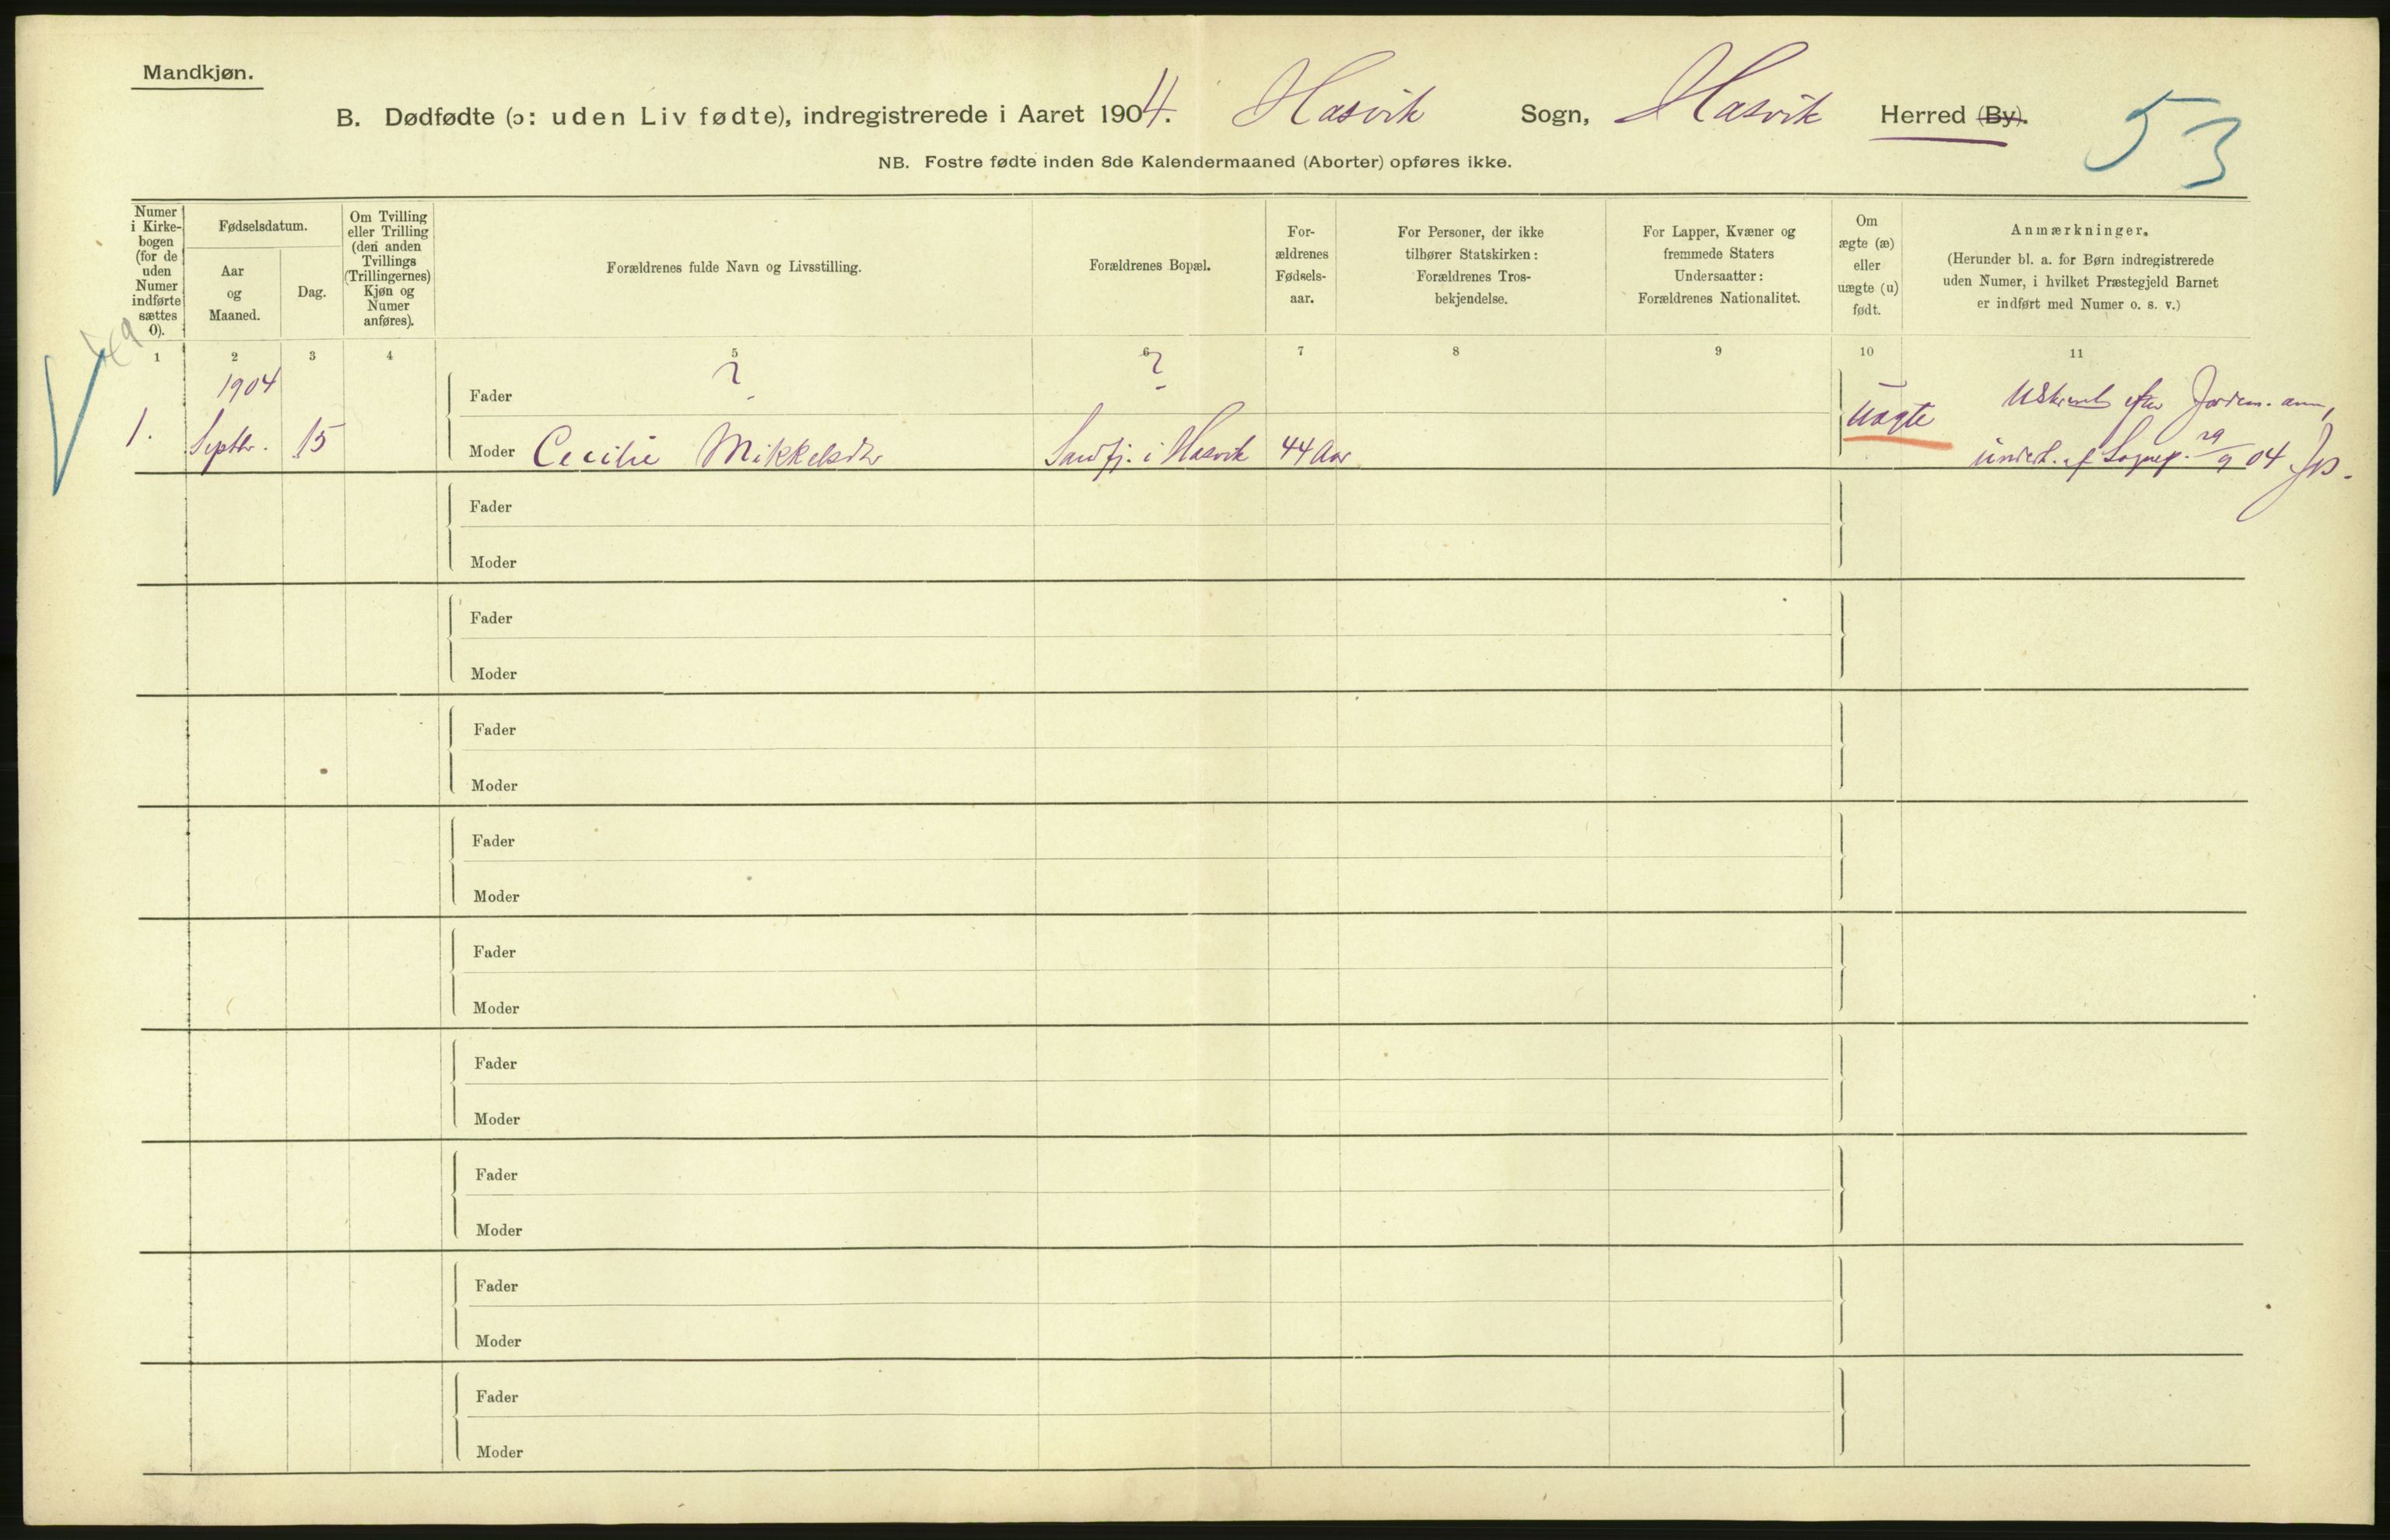 Mandkjøn.
B. Dødfødte (ɔ: uden Liv fødte), indregistrerede i Aaret 1904. Hasvik Sogn, Hasvik Herred (By).
53
NB. Fostre fødte inden 8de Kalendermaaned (Aborter) opføres ikke.
Numer i Kirke-
bogen
(for de
uden
Numer
indførte
sættes
0).
Fødselsdatum.
Aar
og
Maaned.
Dag.
Om Tvilling
eller Trilling
(den anden
Tvillings
(Trillingernes)
Kjøn og
Numer
anføres).
Forældrenes fulde Navn og Livsstilling.
Forældrenes Bopæl.
For-
ældrenes
Fødsels-
aar.
For Personer, der ikke
tilhører Statskirken:
Forældrenes Tros-
bekjendelse.
For Lapper, Kvæner og
fremmede Staters
Undersaatter:
Forældrenes Nationalitet.
Om
ægte (æ)
eller
uægte (u)
født.
Anmærkninger.
(Herunder bl. a. for Børn indregistrerede
uden Numer, i hvilket Præstegjeld Barnet
er indført med Numer o. s. v.)
1 2 3 4 5 6 7 8 9 10 11
1904
Fader ? ?
1. Septbr. 15 Moder Cecilie Mikkelsdtr Sandfj. i Hasvik 44 Aar uægte
efter Jordem. anm,
29/9 04
Fader
Moder
Fader
Moder
Fader
Moder
Fader
Moder
Fader
Moder
Fader
Moder
Fader
Moder
Fader
Moder
Fader
Moder